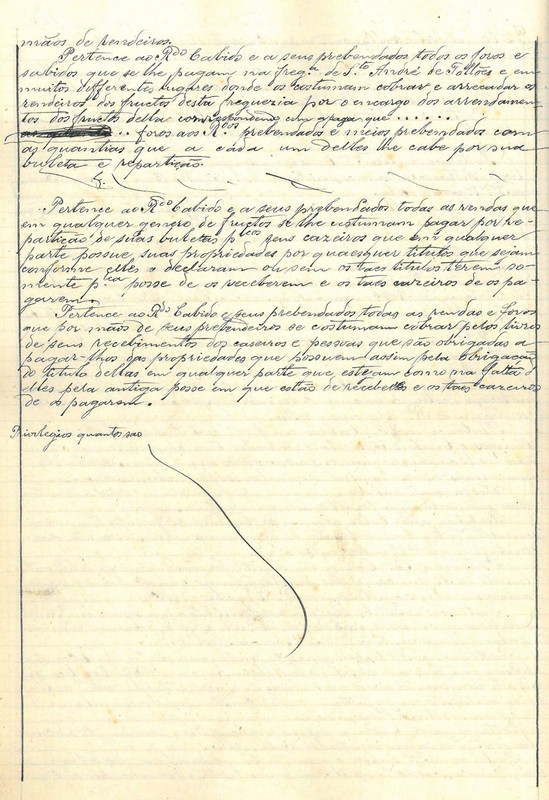 mãos de rendeiros.
Pertence ao R.do Cabido e a seus prebendados todos os foros e
sabidos que se lhe pagam na freg.a de S.to André de Tollões e em
muitos differentes lugares donde os costumam cobrar e arrecadar os
rendeiros dos fructos desta freguezia por o encargo dos arrendamen-
tos dos fructos della correspondendo em a paga que ......
... foros aos R.dos prebendados e meios prebendados com
as quantias que a cada um delles lhe cabe por sua
buleta e repartição.
Pertence ao R.do Cabido e a seus prebendados todas as rendas que
em qualquer genero de fructos se lhe costumam pagar por re-
partição de suas buletas p.los seus cazeiros que em qualquer
parte possue, suas propriedades por quaesquer titulos que sejam
conforme elles o declaram ou sem os taes titulos terem so-
mente p.la posse de os receberem e os taes cazeiros de os pa-
garem.
Pertence ao R.do Cabido e seus prebendados todas as rendas e foros
que por mãos de seus prebendeiros se costumam cobrar pelos livros
de seus recebimentos dos caseiros e pessoas que são obrigadas a
pagar-lhos das propriedades que possuem assim pela obrigação
do titulo dellas em qualquer parte que estejam como na falta d'
elles pela antiga posse em que estão de recebelles e os taes cazeiros
de os pagarem.
Privilegios quantos sao